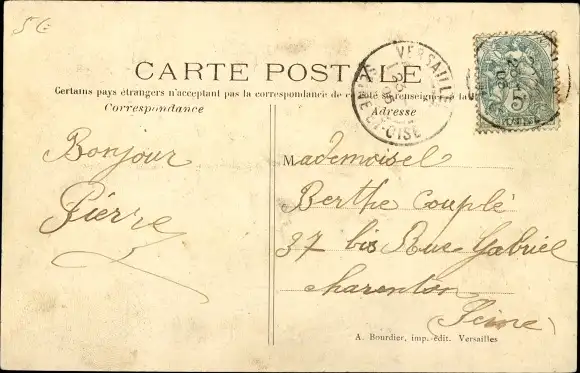 5 c
CARTE POSTALE
Certains pays étrangers n'acceptent pas la correspondance de ce côté se renseigner à la
Correspondance
Adresse
VERSAILLES
SEINE-ET-OISE
5
Bonjour
Pierre
Mademoisel
Berthe Couplé
37 bis Rue Gabriel
Charenton
Seine
A. Bourdier, imp.-édit. Versailles